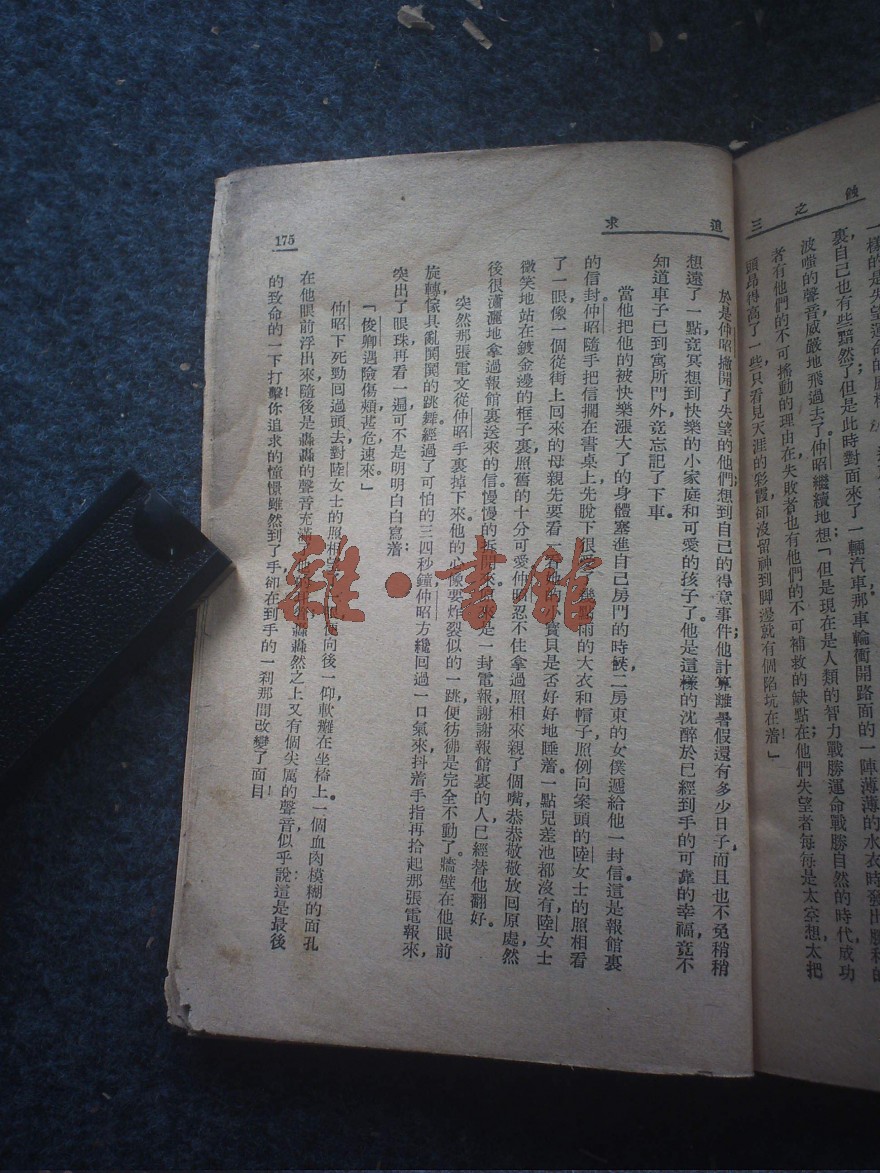 蝕之三
裏自己也有些黯然了但是此時對面來了一輛汽車那車輪衝開路面的一陣薄薄的水衣時發出勝利的
波嗤的聲音威嚴地飛過去了。仲昭繼續地想「但是現在是人類的智力戰勝運命戰勝自然的時代成功
者有他們的不可搖動的理由在失敗者也有他們的不可補救的缺點在他們失望者每每是太空想太把
頭昂得高了一些只看見天涯的彩霞卻沒留神到脚邊就有個陷坑在着」
追求
於是仲昭撇開了失望的他們想到自己的得意事件他計算離暑假還有多少日子而且也不免稍稍
想遠了一點竟冥想到快樂的小家庭和可愛的孩子了。他是這樣的沈醉於已經到手的可靠的幸福竟不
知道車子已到寓所門外竟忘記了下車。
當他把他的被快樂漲大了的身體塞進自己房門的時候二房東的女僕遞給他一封信這是報館裏
的信封仲昭隨手把信擱在書桌上先脫下 雨的大衣和帽子照例向案頭的陸女士的照相看
了一眼像一個從街上回來的母親先要看一看她的小寶貝是否好好地睡着一點兒差池都沒有陸女士
微笑地站在鍍金邊的框子裏照舊的十分可愛仲昭忍不住拿過照相來親了個嘴恭恭敬敬放回原處然
後很瀟灑地拿過報館裏送來的信慢慢的拆開來 是一封電報謝謝報館裏的人已經替他翻好。
突然那張電文從仲昭手裏掉下來他的心像要炸裂似的一跳便彷彿是完全不動了。牆壁在他眼前
旋轉傢具亂鬨鬨的跳舞經過了可怕的三四秒鐘仲昭方纔回過一口氣來抖着手指再拾起那張電報來
突出了眼珠再看一遍可不是明明白白寫着：
「俊卿遇險傷頰甚危速來。」
仲昭下死勁回過頭去對陸女士的照相 便向後一仰軟癱在坐椅上。一個血肉模糊的面孔
在他眼前浮出來隨後是轟轟的聲音充滿 轟轟然之上又有個尖厲的聲音似乎說這是最後
的致命的一下打擊！你追求的憧憬雖然到了手卻在到手的一刹那間改變了面目！
175
雜·書館